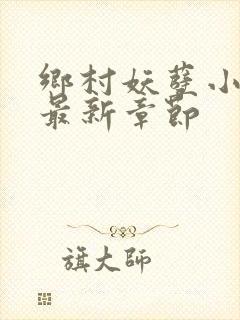 鄉村妖孽小
最新章節
旗大師